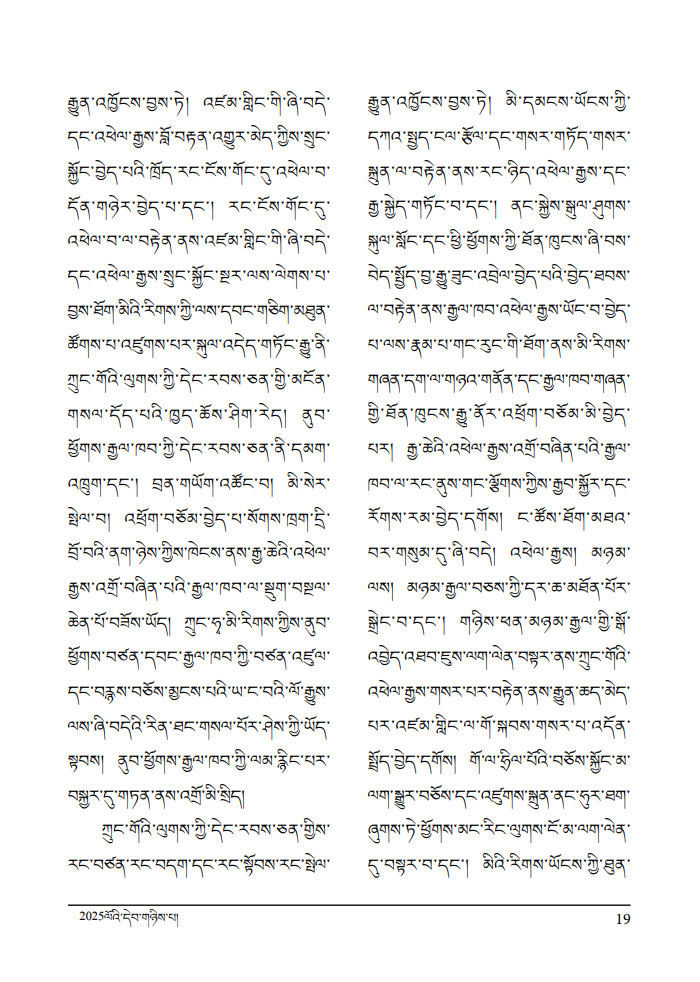 རྒྱུན་འཁྱོངས་བྱས་ཏེ། འཛམ་གླིང་གི་ཞི་བདེ་
དང་འཕེལ་རྒྱས་བློ་བརྟན་འགྱུར་མེད་ཀྱིས་སྲུང་
སྐྱོང་བྱེད་པའི་ཁྲོད་རང་ངོས་གོང་དུ་འཕེལ་བ་
དོན་གཉེར་བྱེད་པ་དང་། རང་ངོས་གོང་དུ་
འཕེལ་བ་ལ་བརྟེན་ནས་འཛམ་གླིང་གི་ཞི་བདེ་
དང་འཕེལ་རྒྱས་སྲུང་སྐྱོང་སྔར་ལས་ལེགས་པ་
བྱས་ཐོག་མིའི་རིགས་ཀྱི་ལས་དབང་གཅིག་མཐུན་
ཚོགས་པ་འཛུགས་པར་སྐུལ་འདེད་གཏོང་རྒྱུ་ནི་
ཀྲུང་གོའི་ལུགས་ཀྱི་དེང་རབས་ཅན་གྱི་མངོན་
གསལ་དོད་པའི་ཁྱད་ཆོས་ཤིག་རེད། ནུབ་
ཕྱོགས་རྒྱལ་ཁབ་ཀྱི་དེང་རབས་ཅན་ནི་དམག་
འཁྲུག་དང་། བྲན་གཡོག་འཚོང་བ། མི་སེར་
སྤེལ་བ། འཕྲོག་བཅོམ་བྱེད་པ་སོགས་ཁྲག་དྲི་
བྲོ་བའི་ནག་ཉེས་ཀྱིས་ཁེངས་ནས་རྒྱ་ཆེའི་འཕེལ་
རྒྱས་འགྲོ་བཞིན་པའི་རྒྱལ་ཁབ་ལ་སྡུག་བསྔལ་
ཆེན་པོ་བཟོས་ཡོད། ཀྲུང་ཧྭ་མི་རིགས་ཀྱིས་ནུབ་
ཕྱོགས་བཙན་དབང་རྒྱལ་ཁབ་ཀྱི་བཙན་འཛུལ་
དང་བརྙས་བཅོས་མྱངས་པའི་ཡ་ང་བའི་ལོ་རྒྱུས་
ལས་ཞི་བདེའི་རིན་ཐང་གསལ་པོར་ཤེས་ཀྱི་ཡོད་
སྟབས། ནུབ་ཕྱོགས་རྒྱལ་ཁབ་ཀྱི་ལམ་རྙིང་པར་
བསྐྱར་དུ་གཏན་ནས་འགྲོ་མི་སྲིད།
ཀྲུང་གོའི་ལུགས་ཀྱི་དེང་རབས་ཅན་གྱིས་
རང་བཙན་རང་བདག་དང་རང་སྟོབས་རང་སྤེལ་
རྒྱུན་འཁྱོངས་བྱས་ཏེ། མི་དམངས་ཡོངས་ཀྱི་
དཀའ་སྤྱད་ངལ་རྩོལ་དང་གསར་གཏོད་གསར་
སྐྲུན་ལ་བརྟེན་ནས་རང་ཉིད་འཕེལ་རྒྱས་དང་
རྒྱ་སྐྱེད་གཏོང་བ་དང་། ནང་སྐྱེས་སྒུལ་ཤུགས་
སྐུལ་སློང་དང་ཕྱི་ཕྱོགས་ཀྱི་ཐོན་ཁུངས་ཞི་བས་
བེད་སྤྱོད་བྱ་རྒྱུ་ཟུང་འབྲེལ་བྱེད་པའི་བྱེད་ཐབས་
ལ་བརྟེན་ནས་རྒྱལ་ཁབ་འཕེལ་རྒྱས་ཡོང་བ་བྱེད་
པ་ལས་རྣམ་པ་གང་རུང་གི་ཐོག་ནས་མི་རིགས་
གཞན་དག་ལ་གཉའ་གནོན་དང་རྒྱལ་ཁབ་གཞན་
གྱི་ཐོན་ཁུངས་རྒྱུ་ནོར་འཕྲོག་བཅོམ་མི་བྱེད་
པར། རྒྱ་ཆེའི་འཕེལ་རྒྱས་འགྲོ་བཞིན་པའི་རྒྱལ་
ཁབ་ལ་རང་ནུས་གང་ལྕོགས་ཀྱིས་རྒྱབ་སྐྱོར་དང་
རོགས་རམ་བྱེད་དགོས། ང་ཚོས་ཐོག་མཐའ་
བར་གསུམ་དུ་ཞི་བདེ། འཕེལ་རྒྱས། མཉམ་
ལས། མཉམ་རྒྱལ་བཅས་ཀྱི་དར་ཆ་མཐོན་པོར་
སྒྲེང་བ་དང་། གཉིས་ཕན་མཉམ་རྒྱལ་གྱི་སྒོ་
འབྱེད་འཐབ་ཇུས་ལག་ལེན་བསྟར་ནས་ཀྲུང་གོའི་
འཕེལ་རྒྱས་གསར་པར་བརྟེན་ནས་རྒྱུན་ཆད་མེད་
པར་འཛམ་གླིང་ལ་གོ་སྐབས་གསར་པ་འདོན་
སྤྲོད་བྱེད་དགོས། གོ་ལ་ཧྲིལ་པོའི་བཅོས་སྐྱོང་མ་
ལག་སྒྱུར་བཅོས་དང་འཛུགས་སྐྲུན་ནང་ཧུར་ཐག་
ཞུགས་ཏེ་ཕྱོགས་མང་རིང་ལུགས་ངོ་མ་ལག་ལེན་
དུ་བསྟར་བ་དང་། མིའི་རིགས་ཡོངས་ཀྱི་ཐུན་
2025ལོའི་དེབ་གཉིས་པ།
19